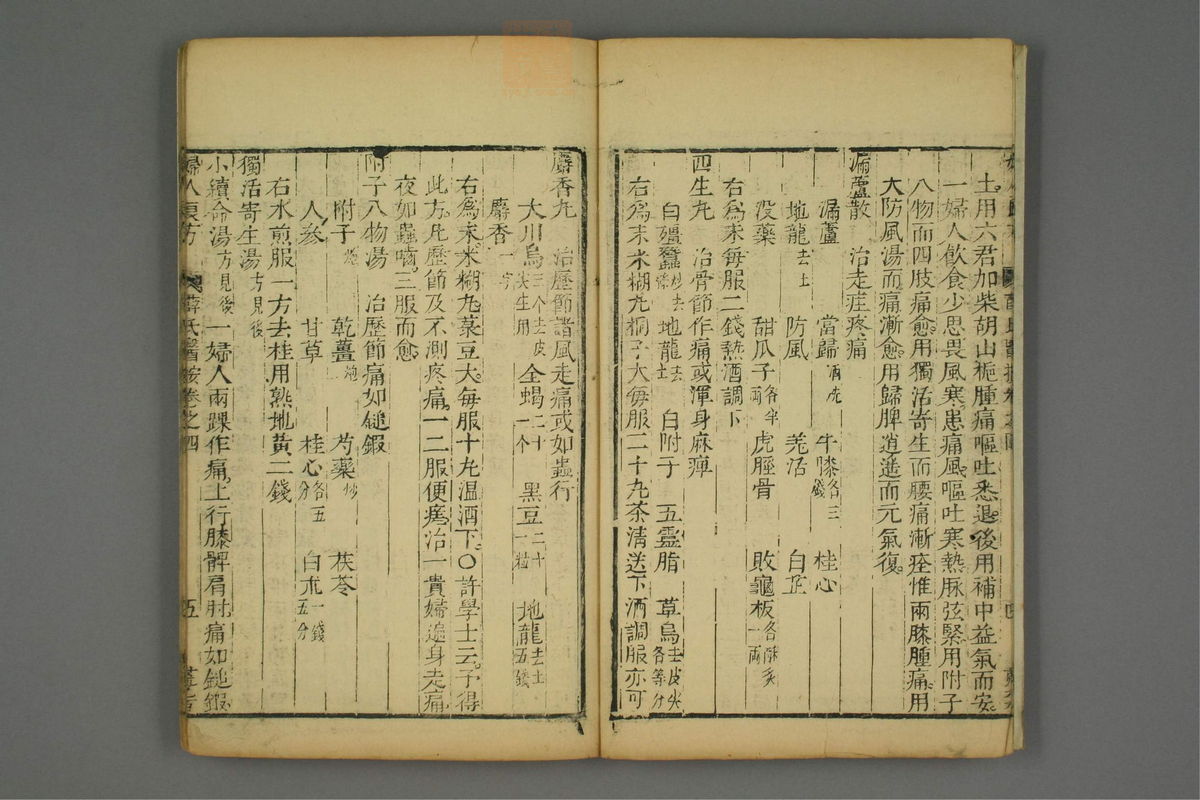 土用六君加柴胡山梔腫痛嘔吐悉退後用補中益氣而安
一婦人飲食少思畏風寒患痛風嘔吐寒熱脉弦緊用附子
八物而四肢痛愈用獨活寄生而腰痛漸痊惟兩膝腫痛用
大防風湯而痛漸愈用歸脾逍遥而元氣復
漏蘆散 治走疰疼痛
漏蘆 當歸酒洗 牛膝各三錢 桂心
地龍去土 防風 羌活 白芷
没藥 甜瓜子各半兩 虎脛骨 敗龜板各酥炙一兩
右爲末每服二錢熱酒調下
四生丸 治骨節作痛或渾身麻痺
白殭蠶炒去絲 地龍去土 白附子 五靈脂 草烏去皮尖各等分
右爲末米糊丸桐子大每服二十丸茶清送下酒調服亦可
麝香丸 治歷節諸風走痛或如蟲行
大川烏三个去皮尖生用 全蝎二十一个 黑豆二十一粒 地龍去土五錢
麝香一字
右爲末米糊丸菉豆大每服十丸温酒下○許學士云予得
此方凡歷節及不測疼痛一二服便瘥治一貴婦遍身走痛
夜如蟲嚙三服而愈
附子八物湯 治歷節痛如鎚鍜
附子炮 乾薑炮 芍藥炒 茯苓
人參 甘草 桂心各五分 白朮一錢五分
右水煎服一方去桂用熟地黄二錢
獨活寄生湯方見後
小續命湯方見後 一婦人兩踝作痛上行膝髀肩肘痛如鎚鍜
婦人良方 薛氏醫按卷之四 五